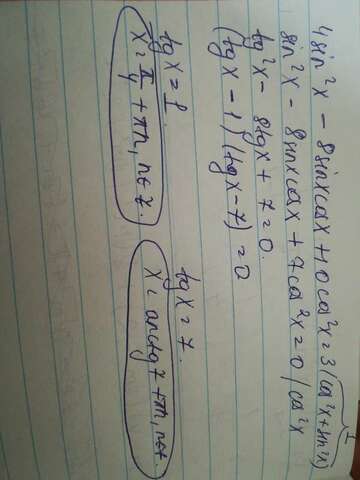 4sin²x - 8sinxcosx + 10cos²x = 3 (cos²x + sin²x)
1
sin²x - 8sinxcosx + 7cos²x = 0 / cos²x
tg²x - 8tgx + 7 = 0.
(tgx - 1)(tgx - 7) = 0
tgx = 1.
tgx = 7.
x = π/4 + πn, n∈z.
x = arctg7 + πn, n∈z.